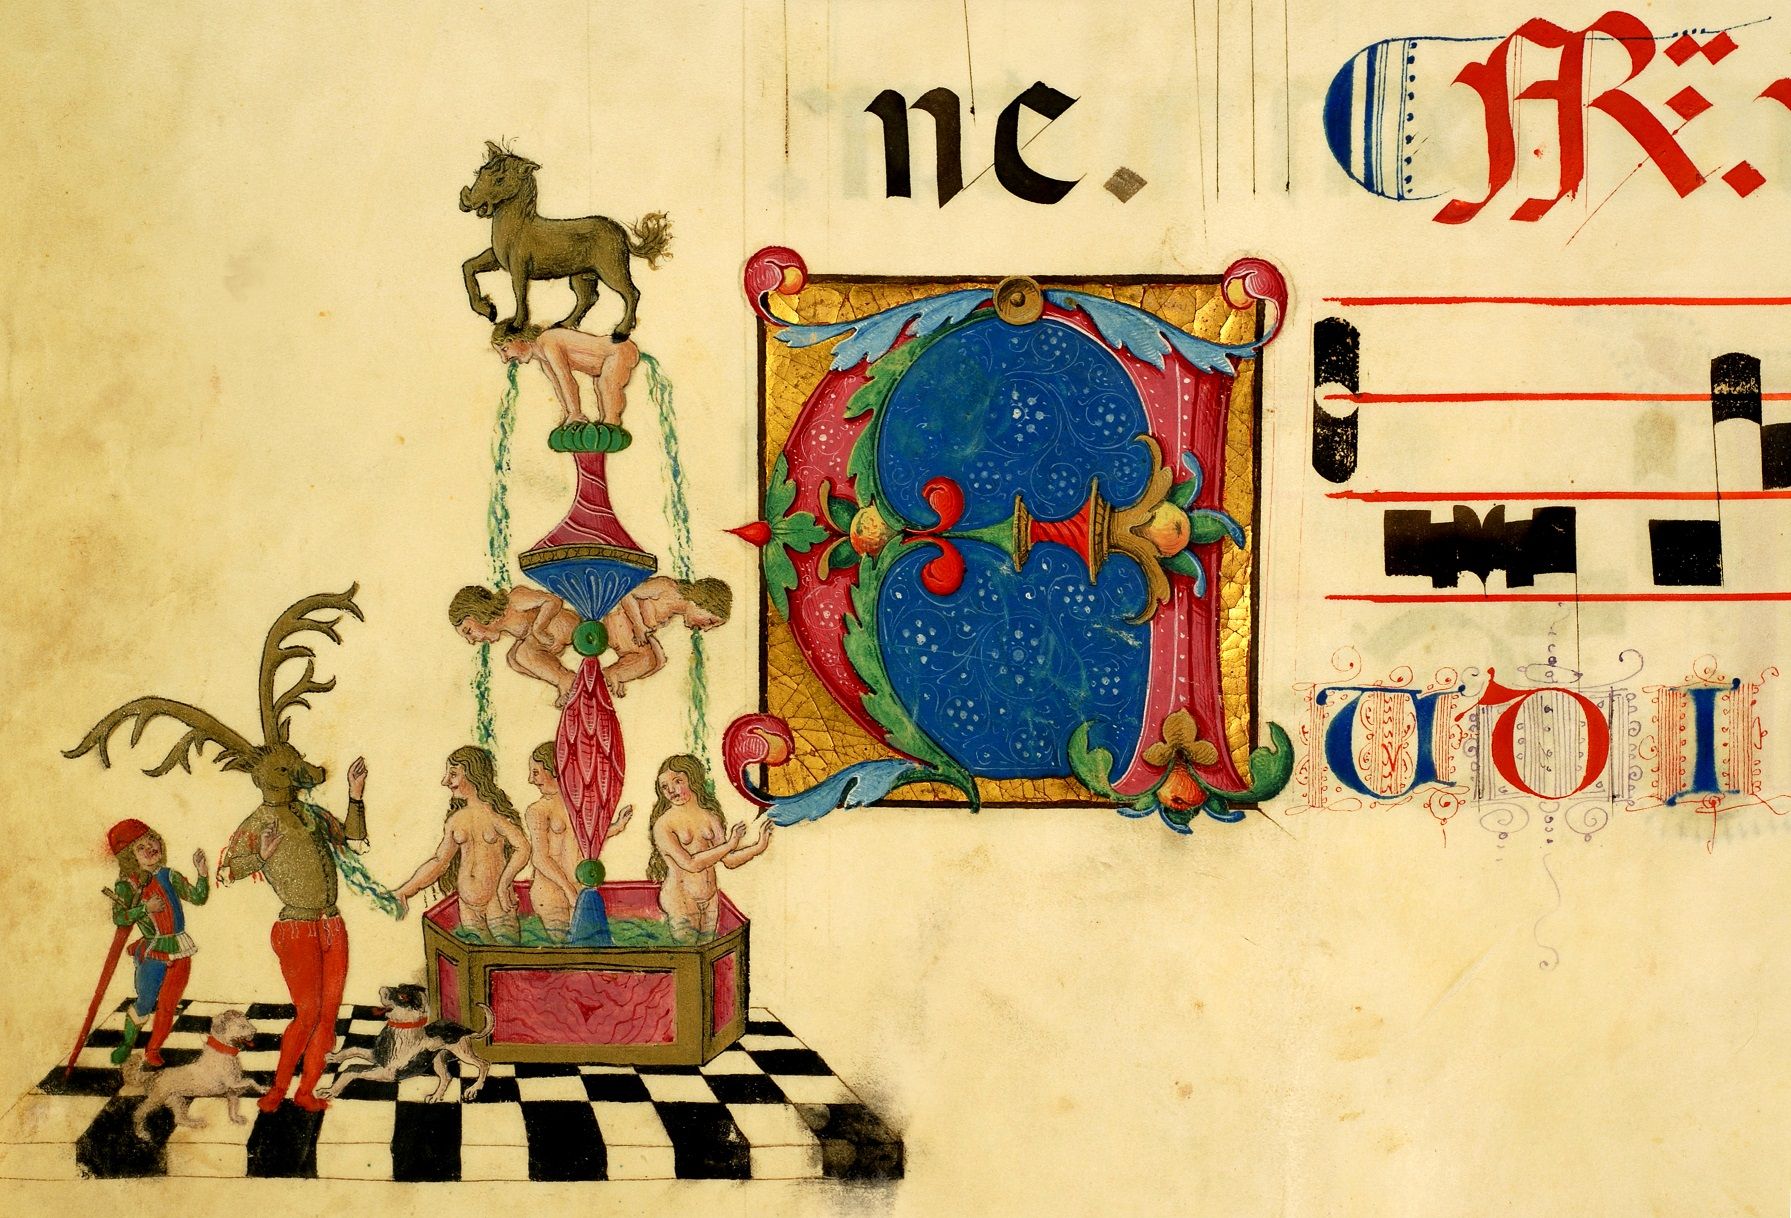 ne. R.
AUDI